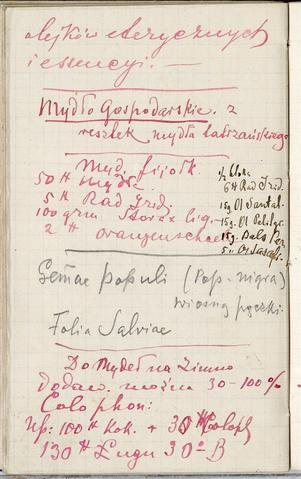 olejków eterycznych
i essencyi. —
Mydło Gospodarskie z
resztek mydła
Myd. fijołk.
50 ℔ Mydła
5 ℔ Rad Irid.
100 grm Storax liq.
2 ℔ Orangenschalen
½ Kilo
6 ℔ Rad Irid.
15g. Ol Santal.
15g. Ol Petitgr.
15g. Bals Per.
5 " Ol Sassafr.
Gemae populi (Pop. nigra)
wiosną pączki.
Folia Salviae
Do Mydeł na Zimno
dodaw. można 30-100%
Colophon:
Np: 100 ℔ Kok. + 30 ℔ Coloph
130 ℔ Ługu 30° B